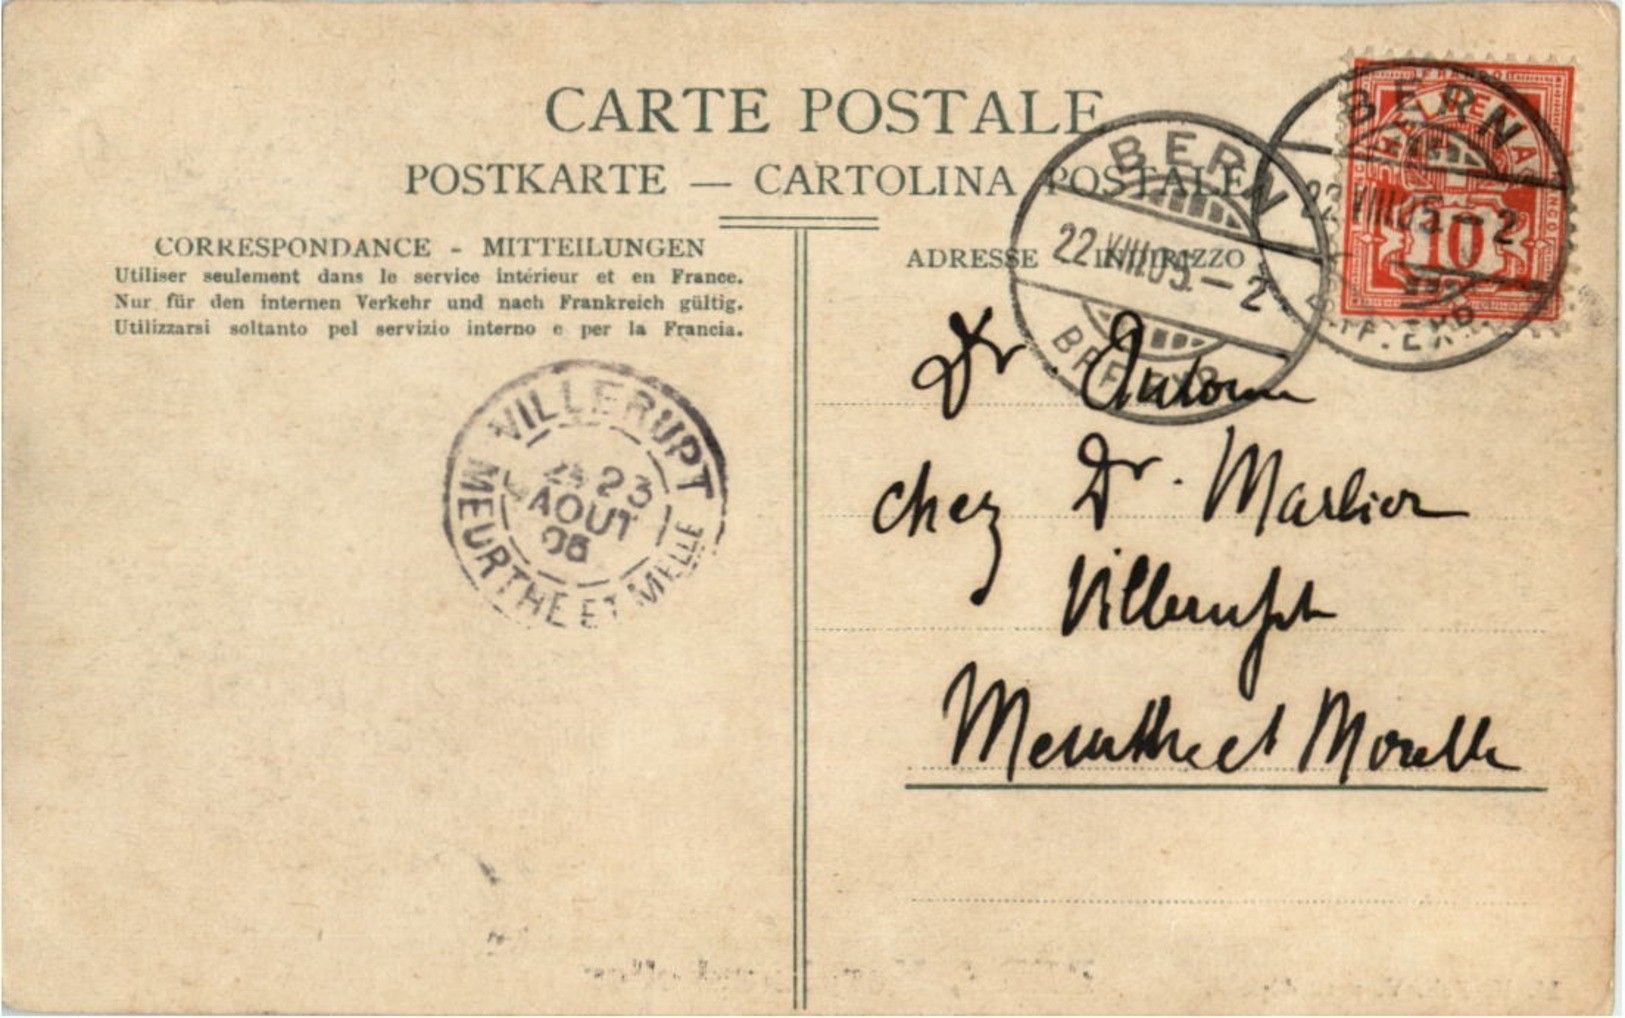 CARTE POSTALE
POSTKARTE — CARTOLINA POSTALE
CORRESPONDANCE - MITTEILUNGEN
Utiliser seulement dans le service intérieur et en France.
Nur für den internen Verkehr und nach Frankreich gültig.
Utilizzarsi soltanto pel servizio interno e per la Francia.
ADRESSE INDIRIZZO
BERN
22.VIII.05.-2
BRF. EXP.
BERN
22.VIII.05.-2
BRF. EXP.
FRANCO
HELVETIA
10
VILLERUPT
23
AOUT
05
MEURTHE ET MELLE
Dr.
chez Dr. Marlier
Villerupt
Meurthe et Moselle